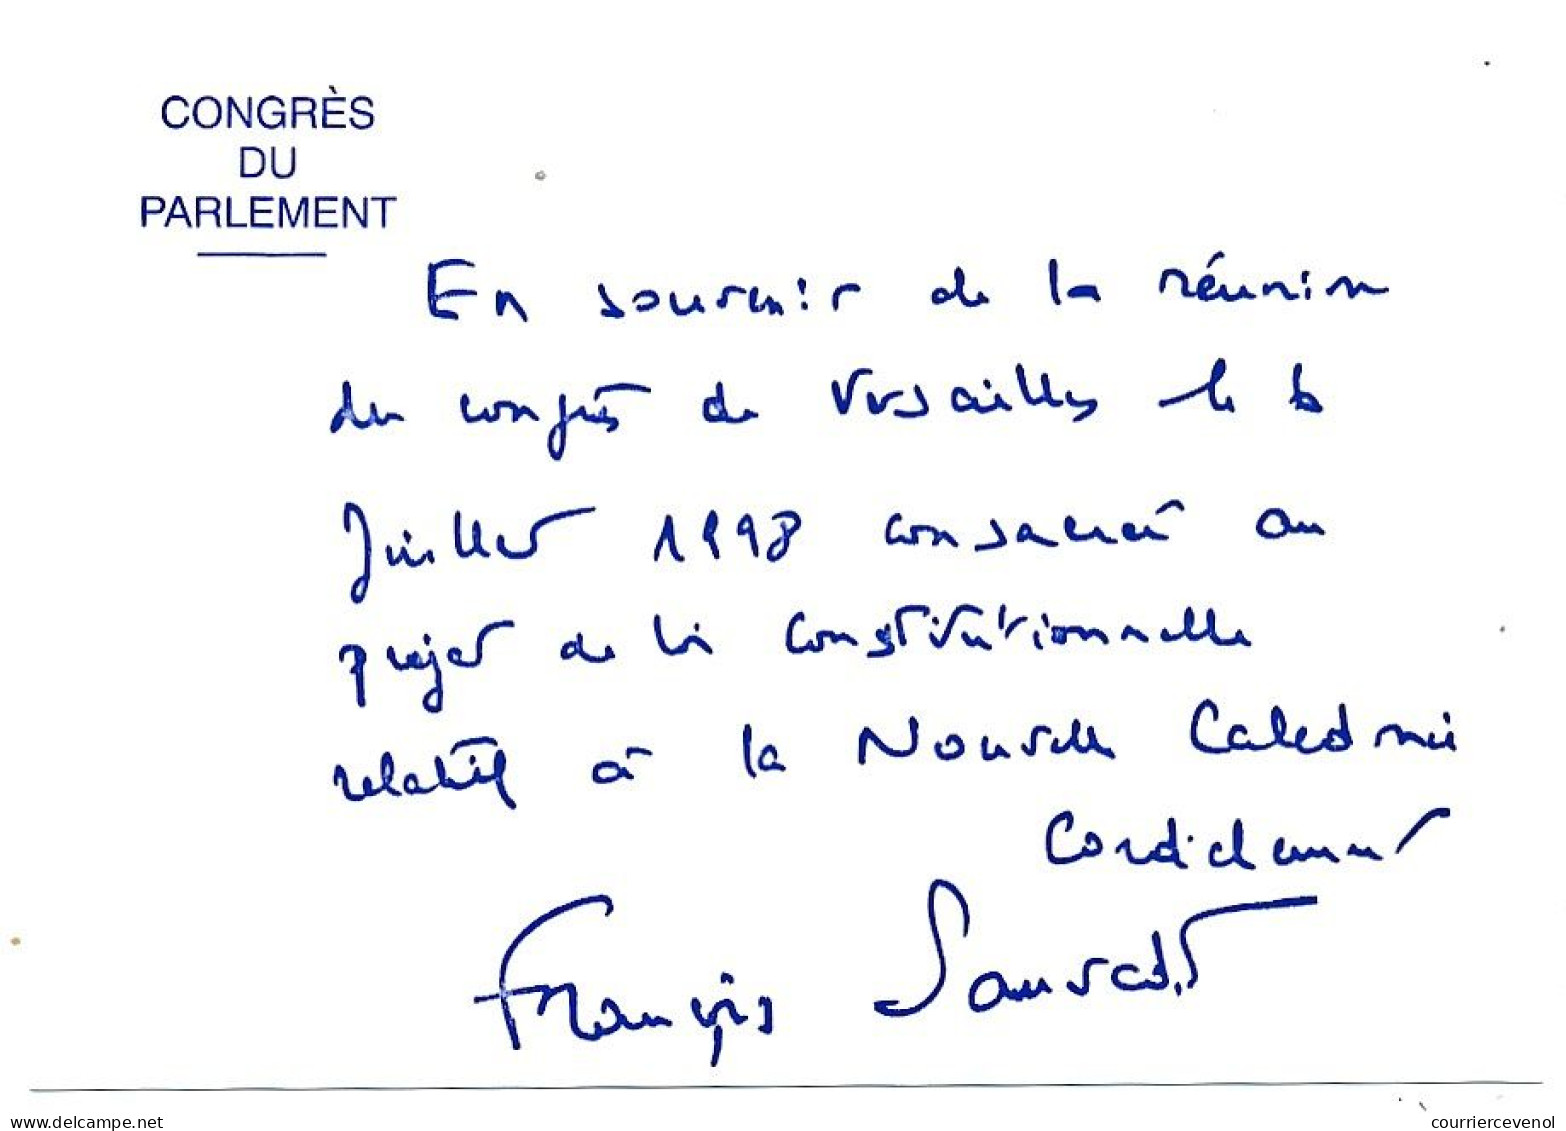 CONGRÈS
DU
PARLEMENT
En souvenir de la réunion
du congrès de Versailles le 6
Juillet 1998 consacré au
projet de loi constitutionnelle
relatif à la Nouvelle Caledonie
Cordialement
François Sauvadet
delcampe.net
courriercevenol